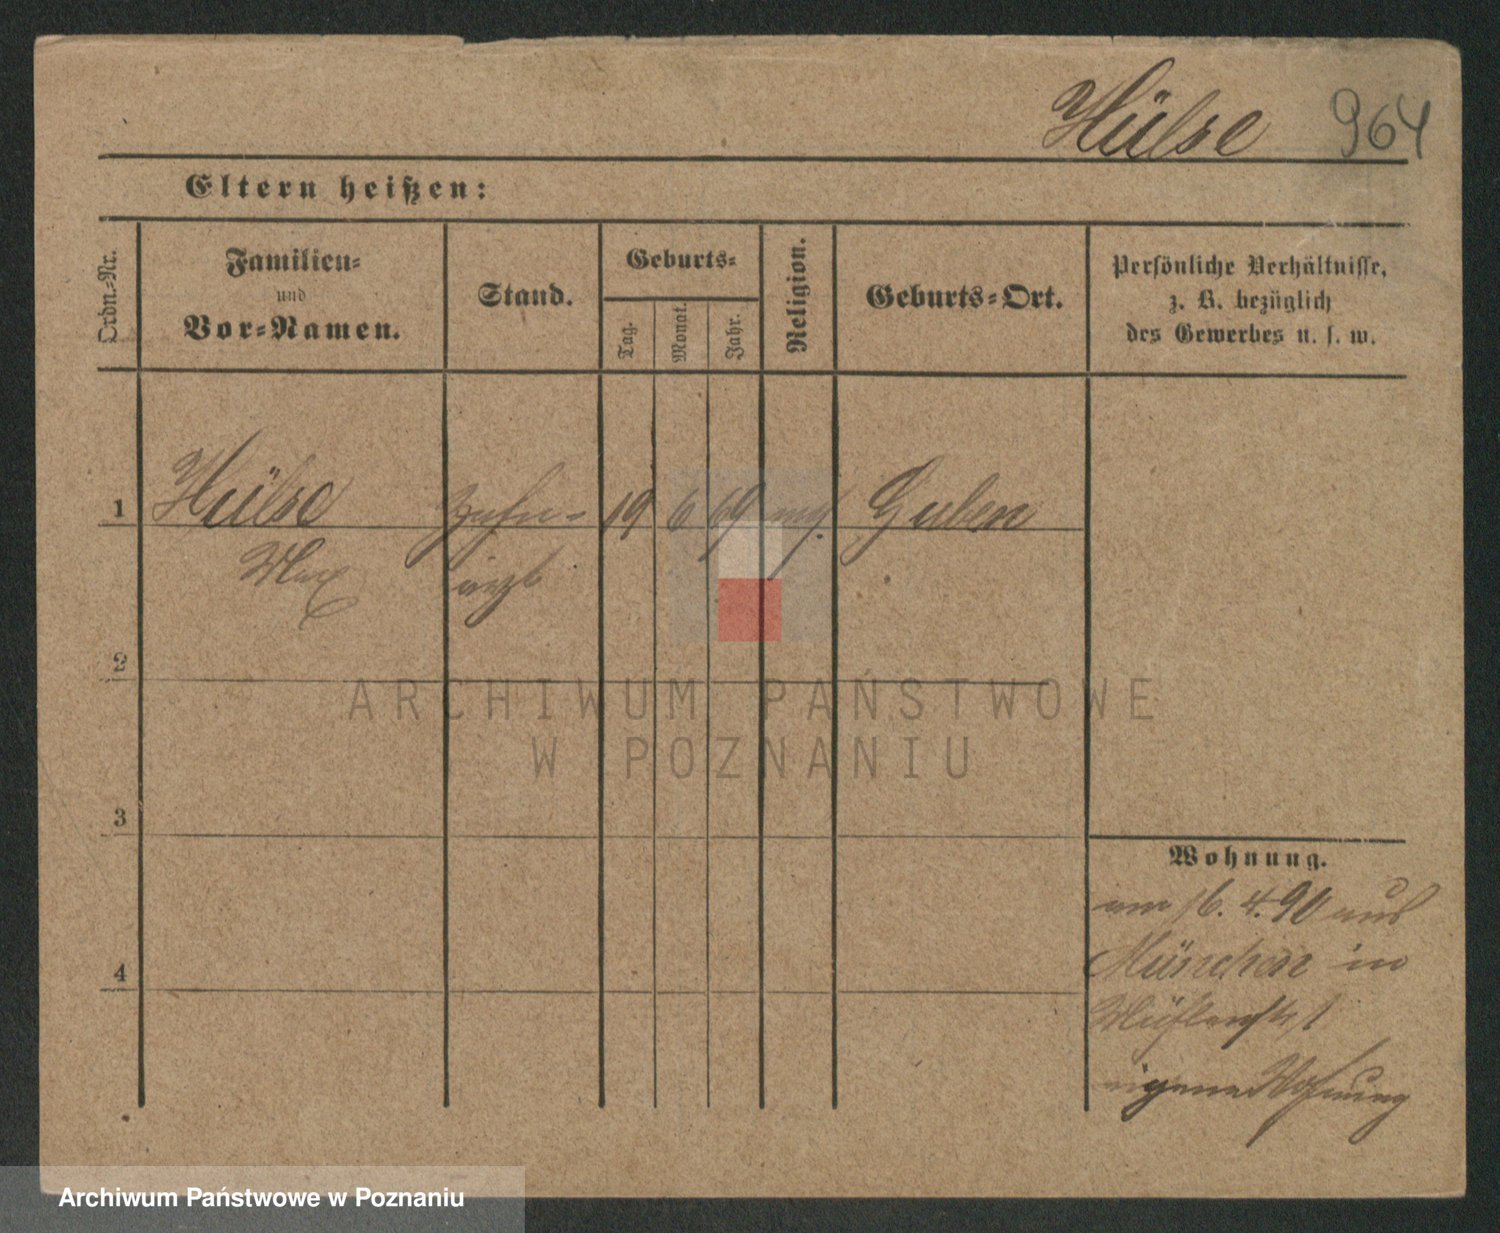 Hülse 964
Eltern heißen:
Ordn.-Nr.
Familien-
und
Vor-Namen.
Stand.
Geburts-
Tag.
Monat.
Jahr.
Religion.
Geburts-Ort.
Persönliche Verhältnisse,
z. B. bezüglich
des Gewerbes u. s. w.
1 Hülse Zahn- 19 6 69 Guben
Max arzt
2
3
4
Wohnung.
am 16. 4. 90 aus
München in
eigene Wohnung
ARCHIWUM PAŃSTWOWE
W POZNANIU
Archiwum Państwowe w Poznaniu